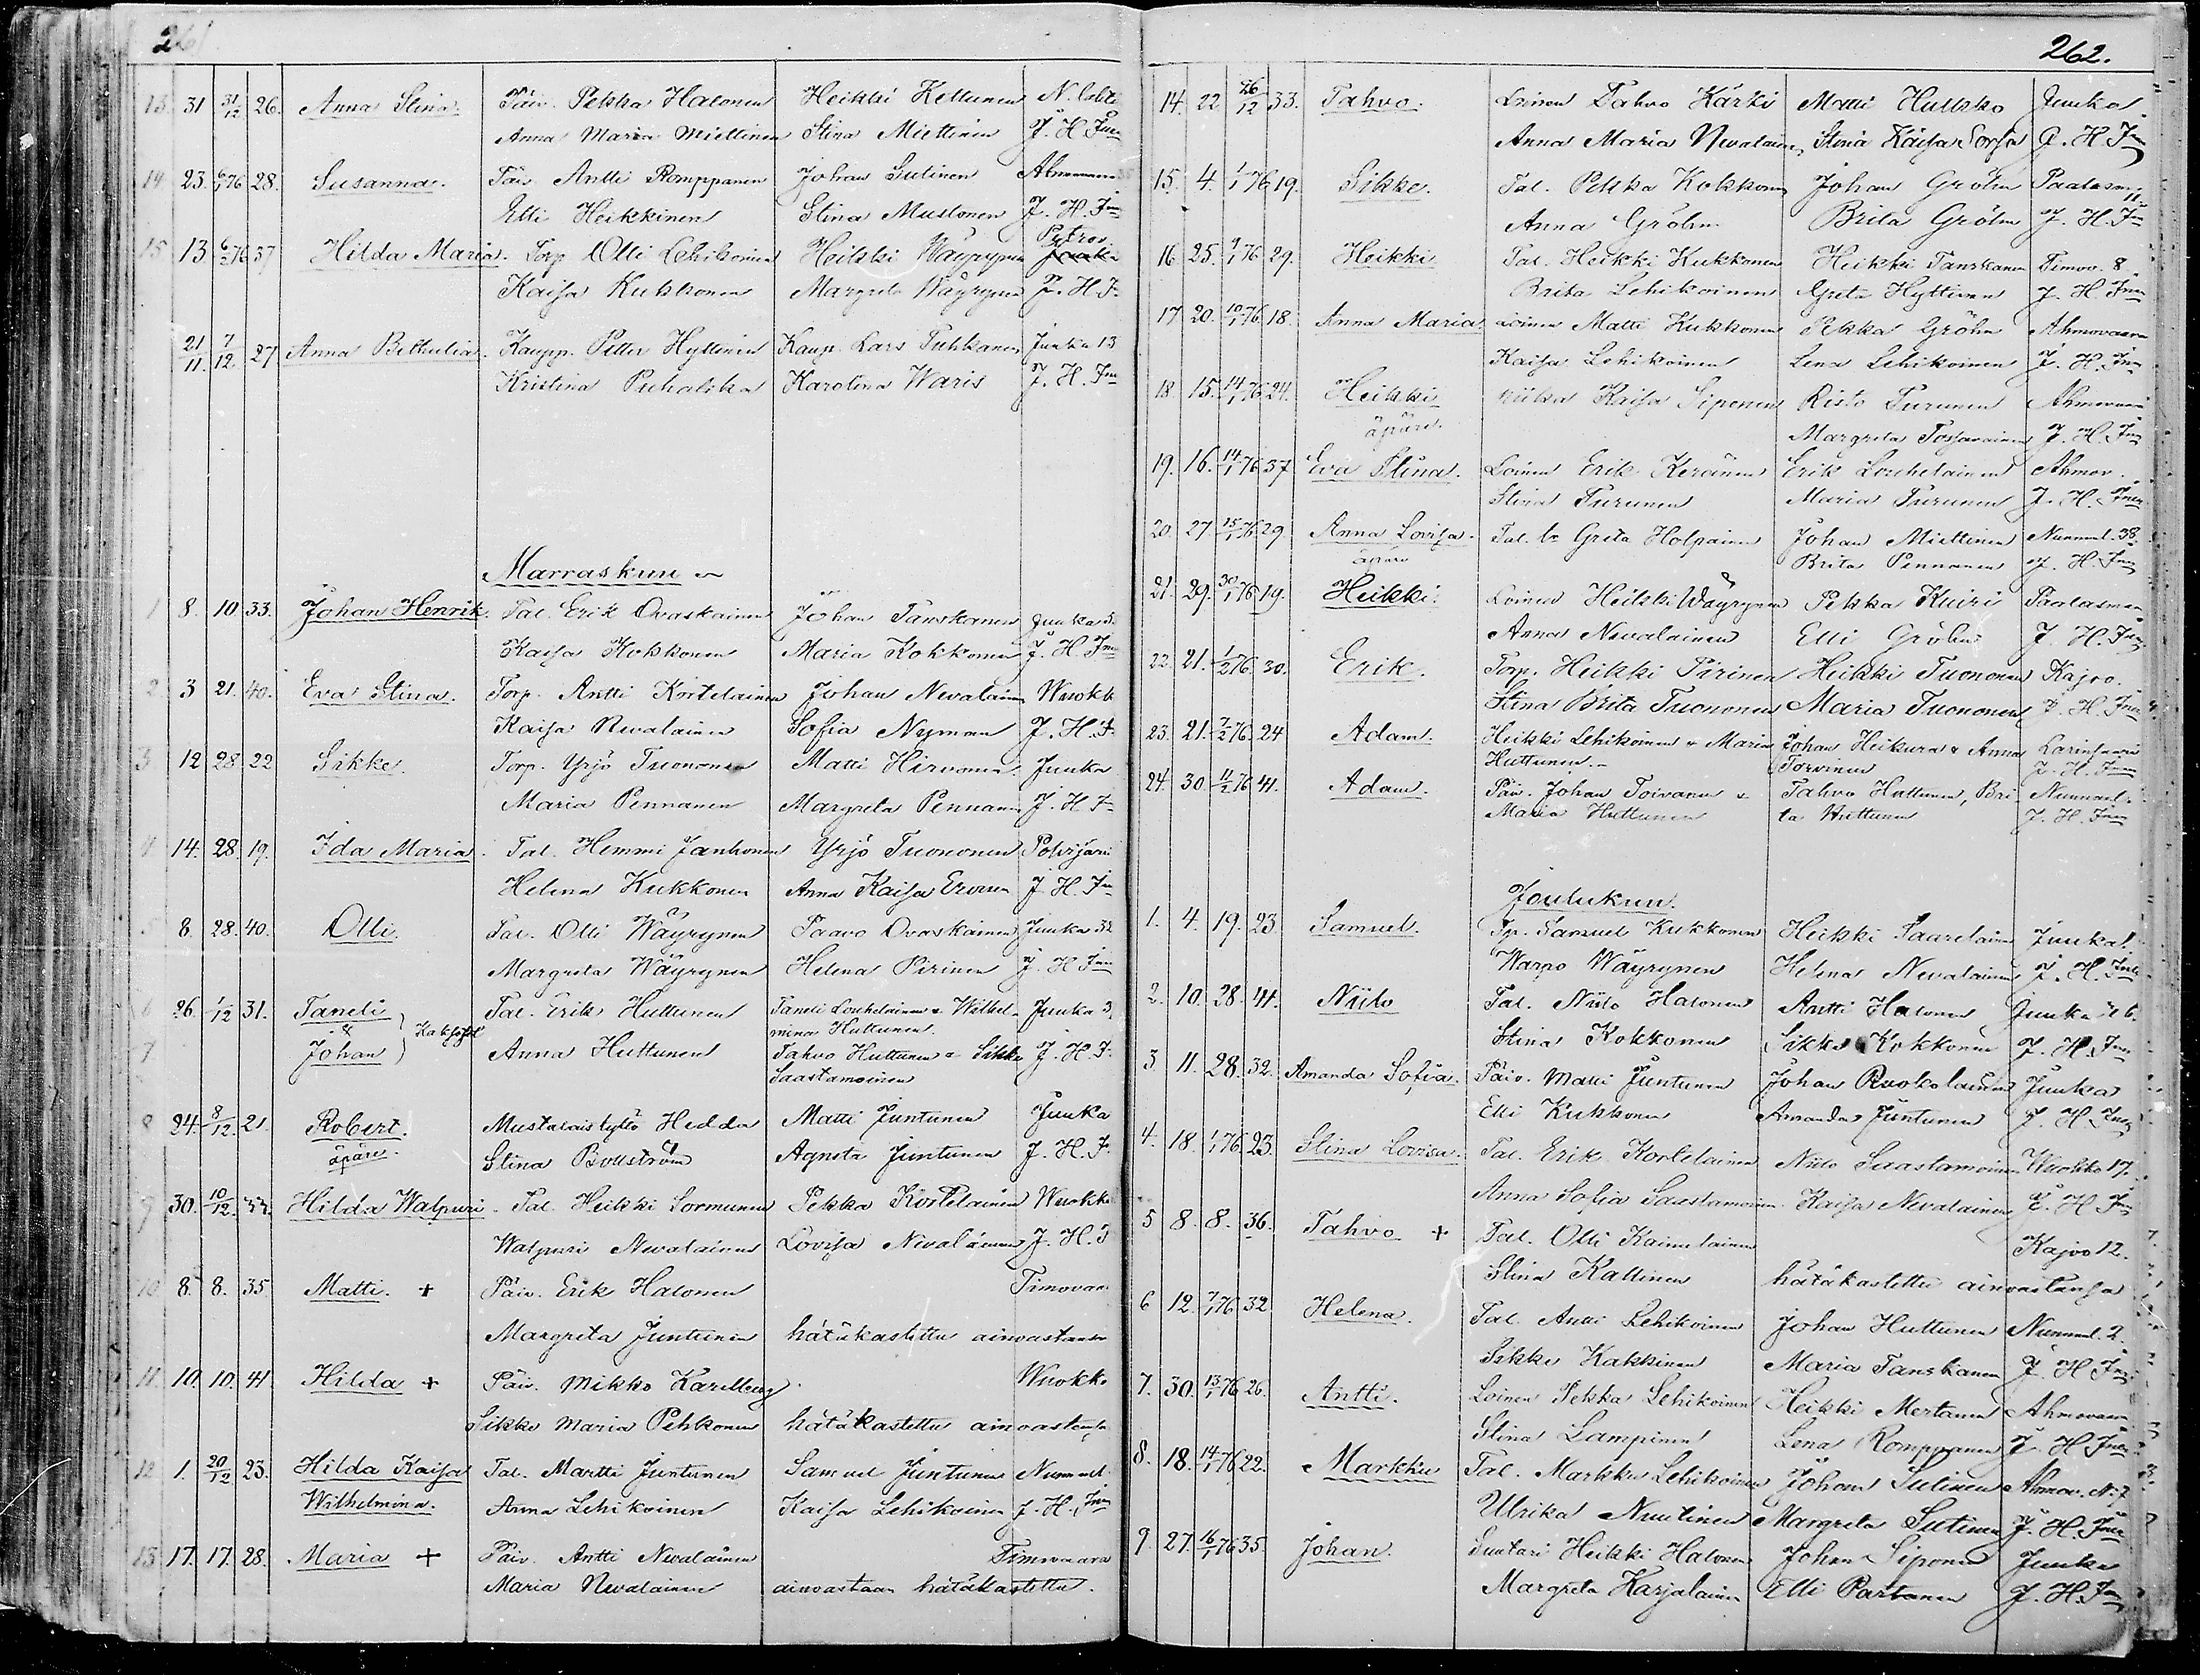 261
13. 31 31/12 26. Anna Stina. Päiv. Pekka Halonen Heikki Kettunen
Anna Maria Miettinen Stina Miettinen J. H.
14 23. 6/1 76 28. Susanna. Päiv. Antti Romppanen Johan Sutinen
Elli Heikkinen Stina Mustonen J. H.
15 13 6/2 76 37 Hilda Maria. Torp. Olli Lehikoinen Heikki Wäyrynen
Kaisa Kukkonen Margreta Wäyrynen J. H.
21/11. 7/12 27 Anna Bethulia. Kaupp. Petter Hyttinen Kaup. Lars Tuhkanen Juuka 13
Kristina Puhakka Karolina Waris J. H.
Marraskuu
1 8. 10 33. Johan Henrik. Tal. Erik Ovaskainen Johan Tanskanen Juuka 5.
Kaisa Kokkonen Maria Kokkonen J. H.
2 3 21. 40. Eva Stina. Torp. Antti Kortelainen Johan Nevalainen
Kaisa Nevalainen Sofia Nyman J. H.
3 12 28 22 Sikke. Torp. Yrjö Tuononen Matti Hirvonen Juuka
Maria Pennanen Margreta Pennanen J. H.
4 14. 28. 19. Ida Maria. Tal. Hemmi Janhonen Yrjö Tuononen
Helena Kukkonen Anna Kaisa J. H.
5 8. 28. 40. Olli. Tal. Olli Wäyrynen Paavo Ovaskainen Juuka 32
Margreta Wäyrynen Helena Pirinen J. H.
6 26. 1/12 31. Taneli Tal. Erik Huttunen Taneli Louhelainen & Wilhel- Juuka 3.
& mina Huttunen.
7 Johan Anna Huttunen Tahvo Huttunen & Sikke J. H.
Saastamoinen
8 24. 8/12. 21. Robert. Mustalaistyttö Hedda Matti Juntunen Juuka
äpäre. Stina Agneta Juntunen J. H.
9 30. 10/12. Hilda Walpuri. Tal. Heikki Sormunen Pekka Kortelainen
Walpuri Nevalainen Lovisa Nevalainen J. H.
10 8. 8. 35. Matti. + Päiv. Erik Halonen
Margreta Juntunen hätäkastettu ainoastaan
11. 10. 10. 41. Hilda + Päiv. Mikko Karlberg. Wuokko
Sikke Maria Pehkonen hätäkastettu ainoastansa
12 1. 20/12 23. Hilda Kaisa Tal. Martti Juntunen Samuel Juntunen
Wilhelmina. Anna Lehikoinen Kaisa Lehikoinen J. H.
13 17. 17. 28. Maria + Päiv. Antti Nevalainen Timovaara
Maria Nevalainen ainoastaan hätäkastettu.
262.
14. 22 26/12 33. Tahvo. Loinen Tahvo Kärki Matti Hulkko Juuka
Anna Maria Nevalainen Stina Kaisa Sorsa J. H.
15. 4. 1/1 76 19. Sikke. Tal. Pekka Kokkonen Johan Gröhn
Anna Gröhn Brita Gröhn J. H.
16. 25. 9/1 76 29. Heikki Tal. Heikki Kukkonen Heikki Tanskanen Timov. 8.
Brita Lehikoinen Greta Hyttinen J. H.
17 20. 10/1 76 18. Anna Maria. Loinen Matti Kukkonen Pekka Gröhn Ahmovaara
Kaisa Lehikoinen Lena Lehikoinen J. H.
18. 15. 14/1 76 24. Heikki Kaisa Siponen Risto Turunen
äpäre. Margreta J. H.
19. 16. 14/1 76 37. Eva Stina. Loinen Erik Keränen Erik Louhelainen Ahmov.
Stina Turunen Maria Turunen J. H.
20. 27. 15/1 76 29 Anna Lovisa. Tal. Greta Holpainen Johan Miettinen 38.
äpäre Brita Pennanen J. H.
21. 29. 30/1 76 19. Heikki. Loinen Heikki Wäyrynen Pekka Kuiri
Anna Nevalainen Elli Gröhn J. H.
22. 21. 1/2 76. 30. Erik. Torp. Heikki Pirinen Heikki Tuononen Kajoo.
Stina Brita Tuononen Maria Tuononen J. H.
23. 21. 7/2 76. 24 Adam. Heikki Lehikoinen & Maria Johan Heikura & Anna
Huttunen. Torvinen J. H.
24. 30. 11/2 76 41. Adam. Päiv. Johan Toivanen & Tahvo Huttunen, Bri-
Maria Huttunen ta Huttunen J. H.
Joulukuu.
1. 4. 19. 23. Samuel. Samuel Kukkonen Heikki Saarelainen
Warpo Wäyrynen Helena Nevalainen J. H.
2. 10. 28. 41. Niilo Tal. Niilo Halonen Antti Halonen Juuka
Stina Kokkonen Sikke Kokkonen J. H.
3 11. 28. 32. Amanda Sofia. Päiv. Matti Juntunen Johan Ruokolainen Juuka
Elli Kukkonen Amanda Juntunen J. H.
4. 18. 1/1 76 23. Stina Lovisa. Tal. Erik Kortelainen Niilo Saastamoinen Wuokko 17.
Anna Sofia Saastamoinen Kaisa Nevalainen J. H.
5 8. 8. 36. Tahvo + Tal. Olli Kainulainen Kajoo 12.
Stina Kallinen hätäkastettu ainoastansa
6 12. 7/1 76 32 Helena. Tal. Antti Lehikoinen Johan Huttunen
Sikke Kakkinen Maria Tanskanen J. H.
7. 30. 13/1 76 26. Antti. Loinen Pekka Lehikoinen Heikki Mertanen Ahmovaara
Stina Lampinen Lena Romppanen J. H.
8. 18. 14/1 76 22. Markku Tal. Markku Lehikoinen Johan Sutinen Ahmov. N:7
Ulrika Nuutinen Margreta Sutinen J. H.
9. 27. 16/1 76 35. Johan. Suutari Heikki Halonen Johan Siponen Juuka
Margreta Karjalainen Elli Partanen J. H.